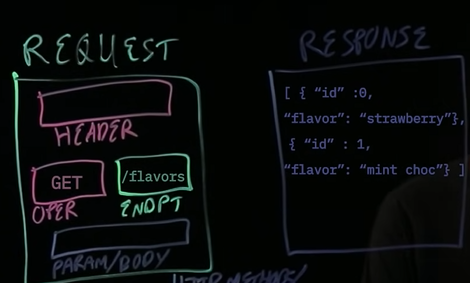 REQUEST
HEADER
GET
/flavors
OPER
ENDPT
PARAM/BODY
RESPONSE
[ { “id” :0,
“flavor”: “strawberry”},
{ “id” : 1,
“flavor”: “mint choc”} ]